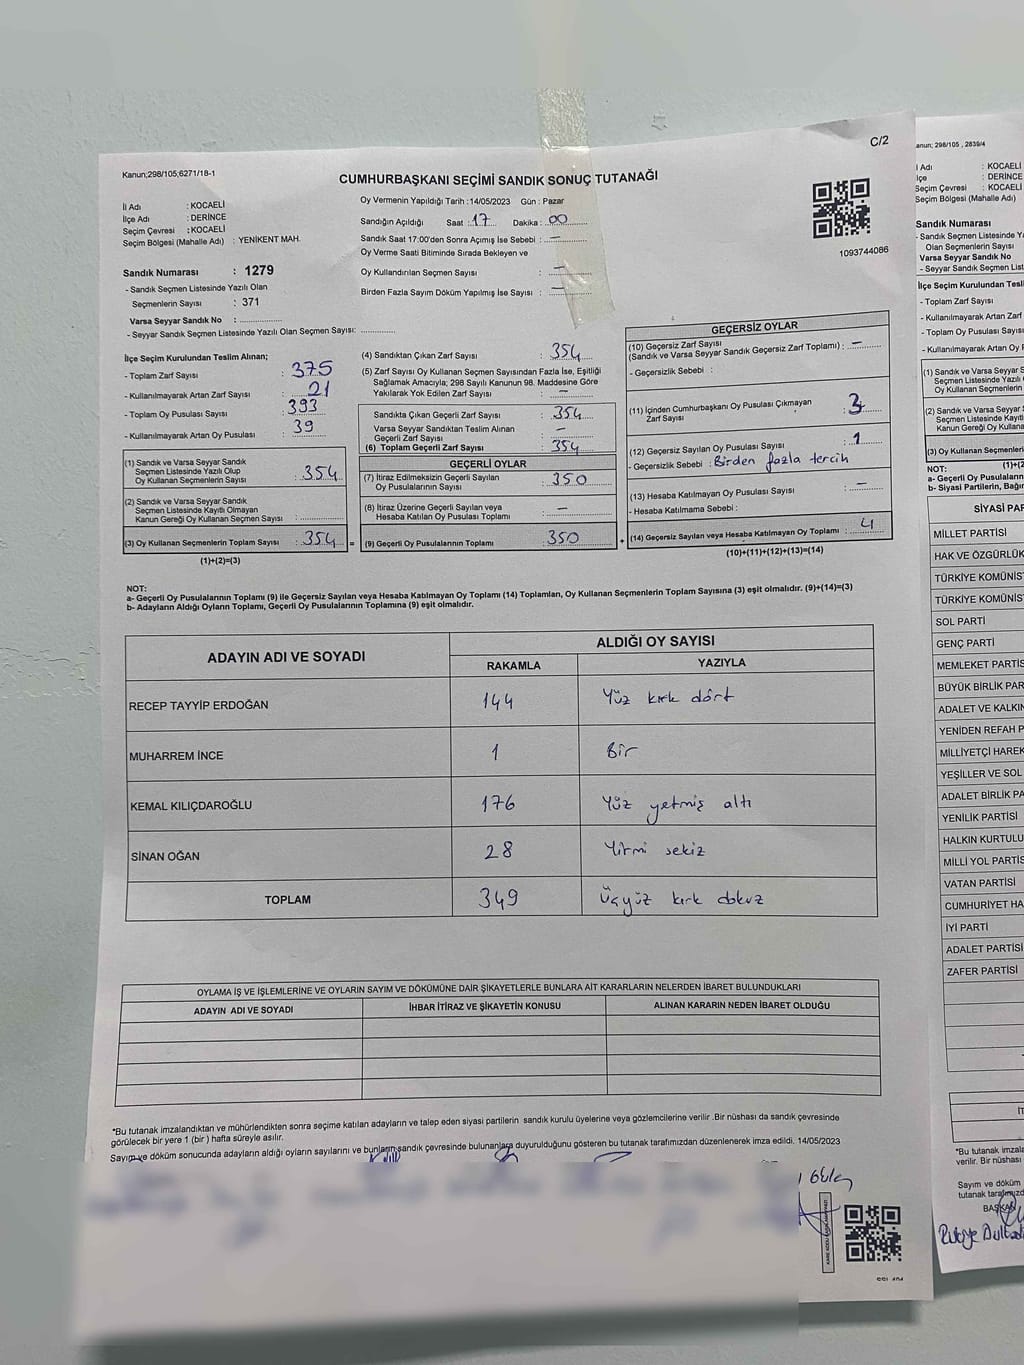 C/2
Kanun;298/105;6271/18-1
CUMHURBAŞKANI SEÇİMİ SANDIK SONUÇ TUTANAĞI
İl Adı : KOCAELİ
İlçe Adı : DERİNCE
Seçim Çevresi : KOCAELİ
Seçim Bölgesi (Mahalle Adı) : YENİKENT MAH.
Oy Vermenin Yapıldığı Tarih :14/05/2023 Gün : Pazar
Sandığın Açıldığı Saat :17 Dakika : 00
Sandık Saat 17:00'den Sonra Açımış İse Sebebi : —
Oy Verme Saati Bitiminde Sırada Bekleyen ve
Oy Kullandırılan Seçmen Sayısı : —
Birden Fazla Sayım Döküm Yapılmış İse Sayısı : —
1093744086
Sandık Numarası : 1279
- Sandık Seçmen Listesinde Yazılı Olan
Seçmenlerin Sayısı : 371
Varsa Seyyar Sandık No :
- Seyyar Sandık Seçmen Listesinde Yazılı Olan Seçmen Sayısı:
İlçe Seçim Kurulundan Teslim Alınan;
- Toplam Zarf Sayısı : 375
- Kullanılmayarak Artan Zarf Sayısı : 21
- Toplam Oy Pusulası Sayısı : 393
- Kullanılmayarak Artan Oy Pusulası : 39
(1) Sandık ve Varsa Seyyar Sandık
Seçmen Listesinde Yazılı Olup
Oy Kullanan Seçmenlerin Sayısı : 354
(2) Sandık ve Varsa Seyyar Sandık
Seçmen Listesinde Kayıtlı Olmayan
Kanun Gereği Oy Kullanan Seçmen Sayısı :
(3) Oy Kullanan Seçmenlerin Toplam Sayısı : 354 =
(1)+(2)=(3)
(4) Sandıktan Çıkan Zarf Sayısı : 354
(5) Zarf Sayısı Oy Kullanan Seçmen Sayısından Fazla İse, Eşitliği
Sağlamak Amacıyla; 298 Sayılı Kanunun 98. Maddesine Göre
Yakılarak Yok Edilen Zarf Sayısı : —
Sandıkta Çıkan Geçerli Zarf Sayısı : 354
Varsa Seyyar Sandıktan Teslim Alınan
Geçerli Zarf Sayısı : —
(6) Toplam Geçerli Zarf Sayısı : 354
GEÇERLİ OYLAR
(7) İtiraz Edilmeksizin Geçerli Sayılan
Oy Pusulalarının Sayısı : 350
(8) İtiraz Üzerine Geçerli Sayılan veya
Hesaba Katılan Oy Pusulası Toplamı : —
(9) Geçerli Oy Pusulalarının Toplamı : 350 +
GEÇERSİZ OYLAR
(10) Geçersiz Zarf Sayısı
(Sandık ve Varsa Seyyar Sandık Geçersiz Zarf Toplamı) : —
- Geçersizlik Sebebi :
(11) İçinden Cumhurbaşkanı Oy Pusulası Çıkmayan
Zarf Sayısı : 3
(12) Geçersiz Sayılan Oy Pusulası Sayısı : 1
- Geçersizlik Sebebi : Birden fazla tercih
(13) Hesaba Katılmayan Oy Pusulası Sayısı : —
- Hesaba Katılmama Sebebi :
(14) Geçersiz Sayılan veya Hesaba Katılmayan Oy Toplamı : 4
(10)+(11)+(12)+(13)=(14)
NOT:
a- Geçerli Oy Pusulalarının Toplamı (9) ile Geçersiz Sayılan veya Hesaba Katılmayan Oy Toplamı (14) Toplamları, Oy Kullanan Seçmenlerin Toplam Sayısına (3) eşit olmalıdır. (9)+(14)=(3)
b- Adayların Aldığı Oyların Toplamı, Geçerli Oy Pusulalarının Toplamına (9) eşit olmalıdır.
ADAYIN ADI VE SOYADI ALDIĞI OY SAYISI
RAKAMLA YAZIYLA
RECEP TAYYİP ERDOĞAN 144 Yüz kırk dört
MUHARREM İNCE 1 Bir
KEMAL KILIÇDAROĞLU 176 Yüz yetmiş altı
SİNAN OĞAN 28 Yirmi sekiz
TOPLAM 349 Üçyüz kırk dokuz
OYLAMA İŞ VE İŞLEMLERİNE VE OYLARIN SAYIM VE DÖKÜMÜNE DAİR ŞİKAYETLERLE BUNLARA AİT KARARLARIN NELERDEN İBARET BULUNDUKLARI
ADAYIN ADI VE SOYADI İHBAR İTİRAZ VE ŞİKAYETİN KONUSU ALINAN KARARIN NEDEN İBARET OLDUĞU
*Bu tutanak imzalandıktan ve mühürlendikten sonra seçime katılan adayların ve talep eden siyasi partilerin sandık kurulu üyelerine veya gözlemcilerine verilir .Bir nüshası da sandık çevresinde
görülecek bir yere 1 (bir ) hafta süreyle asılır.
Sayım ve döküm sonucunda adayların aldığı oyların sayılarını ve bunların sandık çevresinde bulunanlara duyurulduğunu gösteren bu tutanak tarafımızdan düzenlenerek imza edildi. 14/05/2023
anun; 298/105 , 2839/4
l Adı : KOCAELİ
lçe : DERİNCE
Seçim Çevresi : KOCAELİ
Seçim Bölgesi (Mahalle Adı)
Sandık Numarası
- Sandık Seçmen Listesinde Ya
Olan Seçmenlerin Sayısı
Varsa Seyyar Sandık No
- Seyyar Sandık Seçmen List
İlçe Seçim Kurulundan Tesli
- Toplam Zarf Sayısı
- Kullanılmayarak Artan Zarf
- Toplam Oy Pusulası Sayısı
- Kullanılmayarak Artan Oy P
(1) Sandık ve Varsa Seyyar S
Seçmen Listesinde Yazılı
Oy Kullanan Seçmenlerin
(2) Sandık ve Varsa Seyyar
Seçmen Listesinde Kayıtl
Kanun Gereği Oy Kullana
(3) Oy Kullanan Seçmenlerin
(1)+(2
NOT:
a- Geçerli Oy Pusulaların
b- Siyasi Partilerin, Bağım
SİYASİ PAR
MİLLET PARTİSİ
HAK VE ÖZGÜRLÜK
TÜRKİYE KOMÜNİS
TÜRKİYE KOMÜNİST
SOL PARTİ
GENÇ PARTİ
MEMLEKET PARTİS
BÜYÜK BİRLİK PAR
ADALET VE KALKIN
YENİDEN REFAH P
MİLLİYETÇİ HAREK
YEŞİLLER VE SOL
ADALET BİRLİK PA
YENİLİK PARTİSİ
HALKIN KURTULU
MİLLİ YOL PARTİSİ
VATAN PARTİSİ
CUMHURİYET HA
İYİ PARTİ
ADALET PARTİSİ
ZAFER PARTİSİ
*Bu tutanak imzala
verilir. Bir nüshası
Sayım ve döküm
tutanak tarafımızd
BAŞKAN